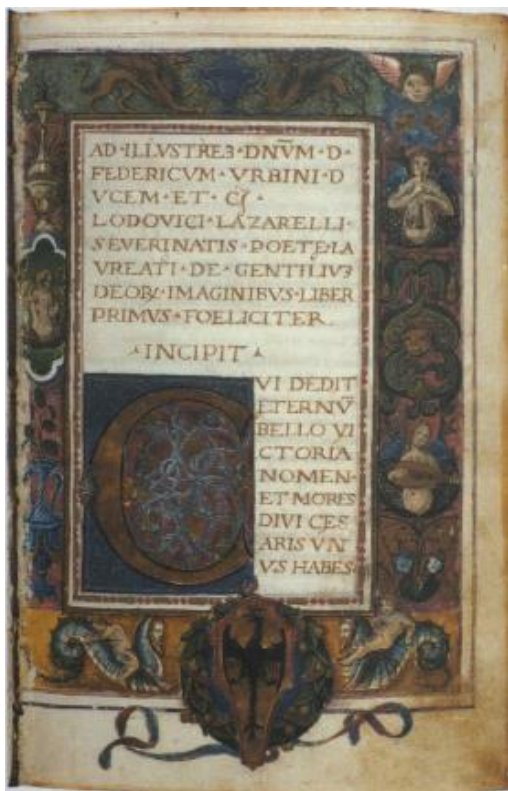 AD·ILLVSTREȝ·DNV̄M·D·
FEDERICVM·VRBINI·D
VCEM·ET·Cȷ·
LODOVICI·LAZARELLI·
SEVERINATIS·POETE·LA
VREATI·DE·GENTILIVȝ
DEOꝝ·IMAGINIBVS·LIBER
PRIMVS·FOELICITER
·INCIPIT·
CVI DEDIT
ETERNV̄
BELLO VI
CTORIA
NOMEN·
ET MORES
DIVI CES
ARIS VN
VS HABES·